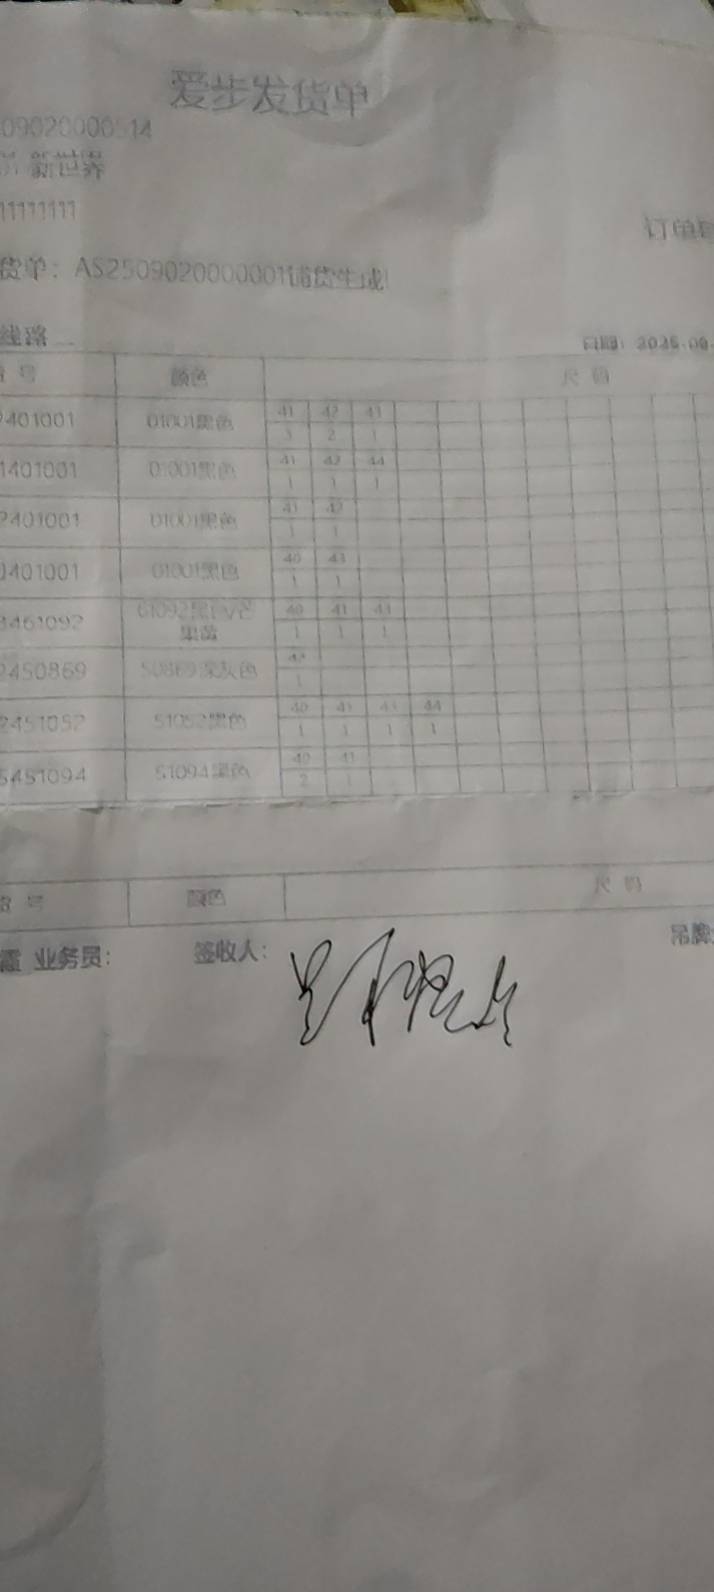 爱步发货单
09020000514
新世界
11111111
订单
货单：AS2509020000001铺货生成
线路
日期：2025-09-
号 颜色 尺 码
401001 01001黑色 41 42 43
3 2 1
1401001 01001黑色 41 42 44
1 1 1
2401001 01001黑色 41 42
1 1
401001 01001黑色 40 43
1 1
461092 61092黑色/芒果黄 40 41 43
1 1 1
2450869 50869深灰色 42
1
2451052 51052黑色 40 41 43 44
1 1 1 1
5451094 51094黑色 40 41
2 1
号 颜色 尺 码
霞 业务员： 签收人： 吊牌